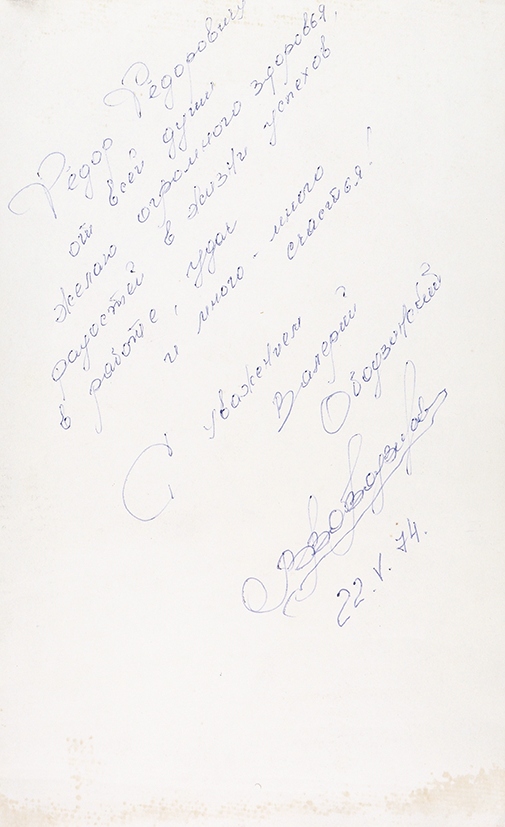 Фёдор Фёдоровичу
от всей души
желаю огромного здоровья,
радостей в жизни успехов
в работе, удач
и много - много
счастья!
С уважением
Валерий
Ободзинский
22.V.74.